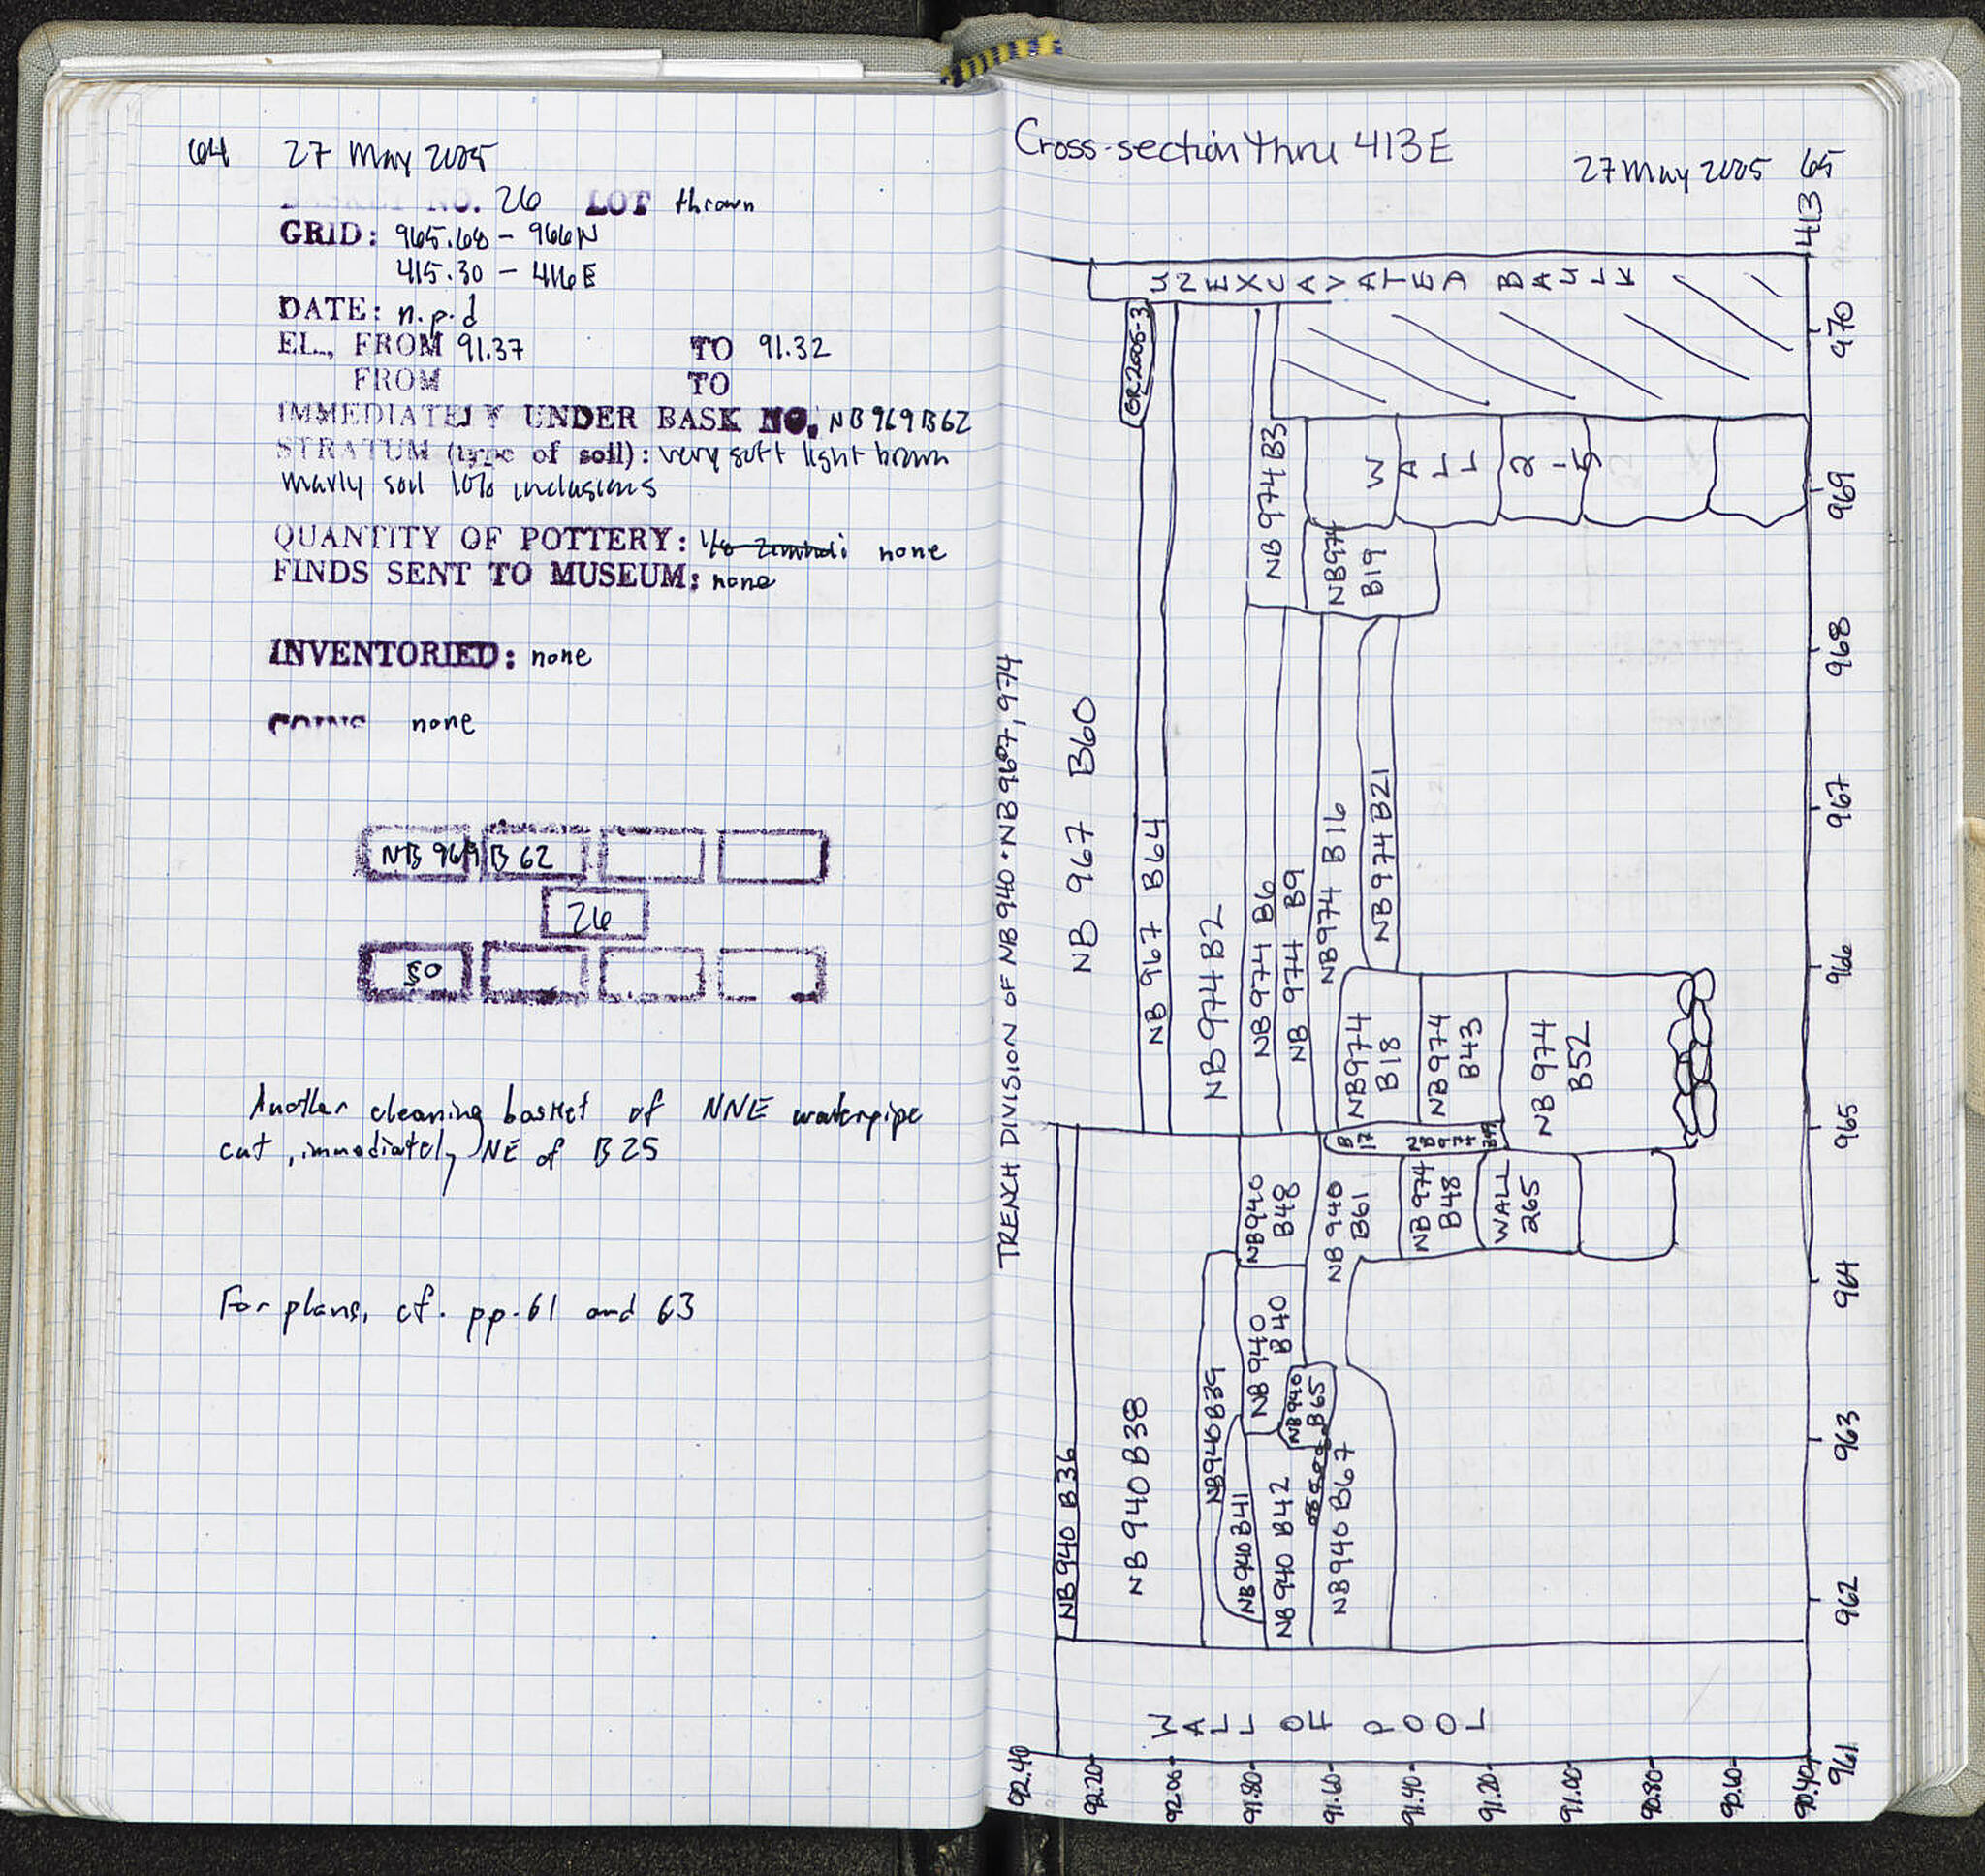 64 27 May 2005
BASKET NO. 26 LOT thrown
GRID: 965.68 - 966N
415.30 - 416E
DATE: n.p.d
EL., FROM 91.37 TO 91.32
FROM TO
IMMEDIATELY UNDER BASK NO. NB969B62
STRATUM (type of soil): very soft light brown
marly soil 10% inclusions
QUANTITY OF POTTERY: none
FINDS SENT TO MUSEUM: none
INVENTORIED: none
COINS none
NB 969 B 62
26
50
Another cleaning basket of NNE waterpipe
cut, immediately NE of B25
For plans, cf. pp. 61 and 63
Cross-section thru 413E
27 May 2005 65
413
UNEXCAVATED BAULK
GR2005-3
NB974B3
WALL 2-5
NB974
B19
TRENCH DIVISION OF NB940 · NB967, 974
NB 967 B60
NB 967 B64
NB974B2
NB974 B6
NB 974 B9
NB974 B16
NB974B21
NB974
B18
NB974
B43
NB 974
B52
B
17
NB974
NB940
B48
NB 940
B61
NB974
B48
WALL
265
NB940 B36
NB940B38
NB940B39
NB940B41
NB940
B40
NB940
B65
NB940 B42
NB940 B67
WALL OF POOL
970
969
968
967
966
965
964
963
962
961
92.40
92.20
92.00
91.80
91.60
91.40
91.20
91.00
90.80
90.60
90.40